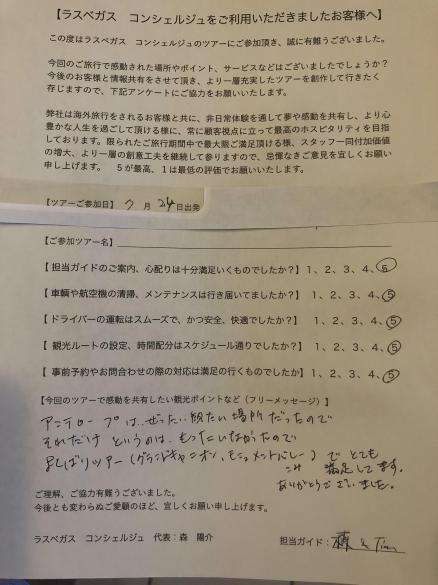 【ラスベガス　コンシェルジュをご利用いただきましたお客様へ】
この度はラスベガス　コンシェルジュのツアーにご参加頂き、誠に有難うございました。
今回のご旅行で感動された場所やポイント、サービスなどはございましたでしょうか？
今後のお客様と情報共有をさせて頂き、より一層充実したツアーを創作して行きたく
存じますので、下記アンケートにご協力をお願いいたします。
弊社は海外旅行をされるお客様と共に、非日常体験を通して夢や感動を共有し、より心
豊かな人生を過ごして頂ける様に、常に顧客視点に立って最高のホスピタリティを目指
しております。限られたご旅行期間中で最大限ご満足頂ける様、スタッフ一同付加価値
の増大、より一層の創意工夫を継続して参りますので、忌憚なきご意見を宜しくお願い
申し上げます。　５が最高、１は最低の評価でお願いいたします。
【ツアーご参加日】 7 月 24 日出発
【ご参加ツアー名】
【 担当ガイドのご案内、心配りは十分満足いくものでしたか？】1、2、3、4、5
【 車輌や航空機の清掃、メンテナンスは行き届いてましたか？】1、2、3、4、5
【 ドライバーの運転はスムーズで、かつ安全、快適でしたか？】 1、2、3、4、5
【 観光ルートの設定、時間配分はスケジュール通りでしたか？】 1、2、3、4、5
【 事前予約やお問合わせの際の対応は満足の行くものでしたか】 1、2、3、4、5
【今回のツアーで感動を共有したい観光ポイントなど（フリーメッセージ）】
アンテロープは、ぜったい観たい場所だったので
それだけ というのは、もったいなかったので
よくばりツアー（グランドキャニオン、モニュメントバレー）で とても
満足してます。
ありがとうございました。
ご理解、ご協力有難うございました。
今後とも変わらぬご愛顧のほど、宜しくお願い申し上げます。
ラスベガス　コンシェルジュ　代表：森　陽介
担当ガイド： & Tim